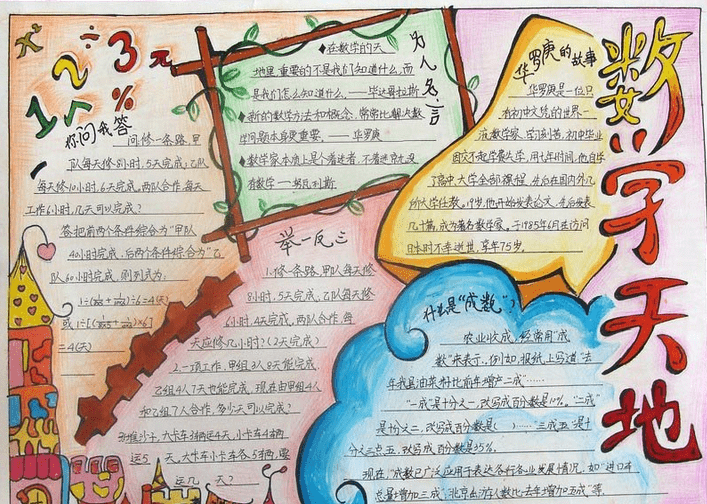 数学天地
1 2 3 元
%
÷
你问我答
问修一条路,甲
队每天修8小时,5天完成;乙队
每天修10小时,6天完成,两队合作,每天
工作6小时,几天可以完成?
答把前两个条件综合为“甲队
40小时完成,后两个条件综合为“乙
队60小时完成,则列式为:
=4(天)
为人名言
在数学的天
地里,重要的不是我们知道什么,而
是我们怎么知道什么。——毕达哥拉斯
新的数学方法和概念,常常比解决数
学问题本身更重要。——华罗庚
数学家本质上是个着迷者,不着迷就没
有数学——努瓦利斯
华罗庚的故事
华罗庚是一位只
有初中文凭的世界一
流数学家,学习刻苦,初中毕业
因交不起学费失学,用七年时间,他自学
了高中、大学全部课程,先后在国内外几
所大学任教,19岁,他开始发表论文,先后发表
几十篇,成为著名数学家,于1985年6月去访问
日本时不幸逝世,享年75岁。
举一反三
1.修一条路,甲队每天修
8小时,5天完成,乙队每天修
6小时,4天完成,两队合作,每
天应修几小时?(2天完成)
2.一项工作,甲组3人8天能完成
乙组4人7天也能完成,现在由甲组4人
和乙组7人合作,多少天可以完成?
大卡车3辆运4天,小卡车4辆
运5天,大卡车小卡车各5辆,要
运几天?
什么是“成数”?
农业收成,经常用“成
数”来表示,例如,报纸上写道“去
年我县油菜籽比前年增产二成”……
“一成”是十分之一,改写成百分数是10%,“二成”
是十分之二,改写成百分数是( )……“三成五”是十
分之三点五,改写成百分数是35%。
现在,“成数已广泛应用于表达各行各业发展情况,如“进口车
总量增加三成”,北京出游人数比去年增加五成”等